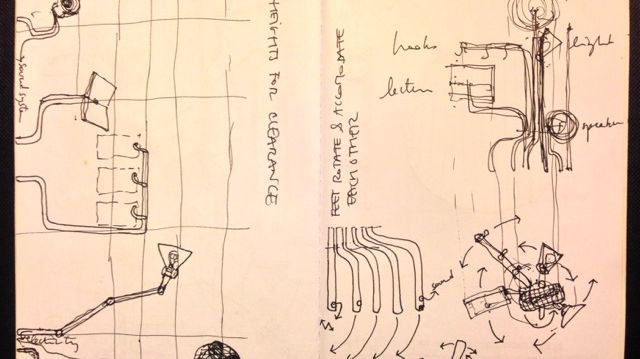 sound system
HEIGHTS FOR CLEARANCE
electricity
hooks
light
lectern
speaker
FEET ROTATE & ACCOMODATE
EACH OTHER